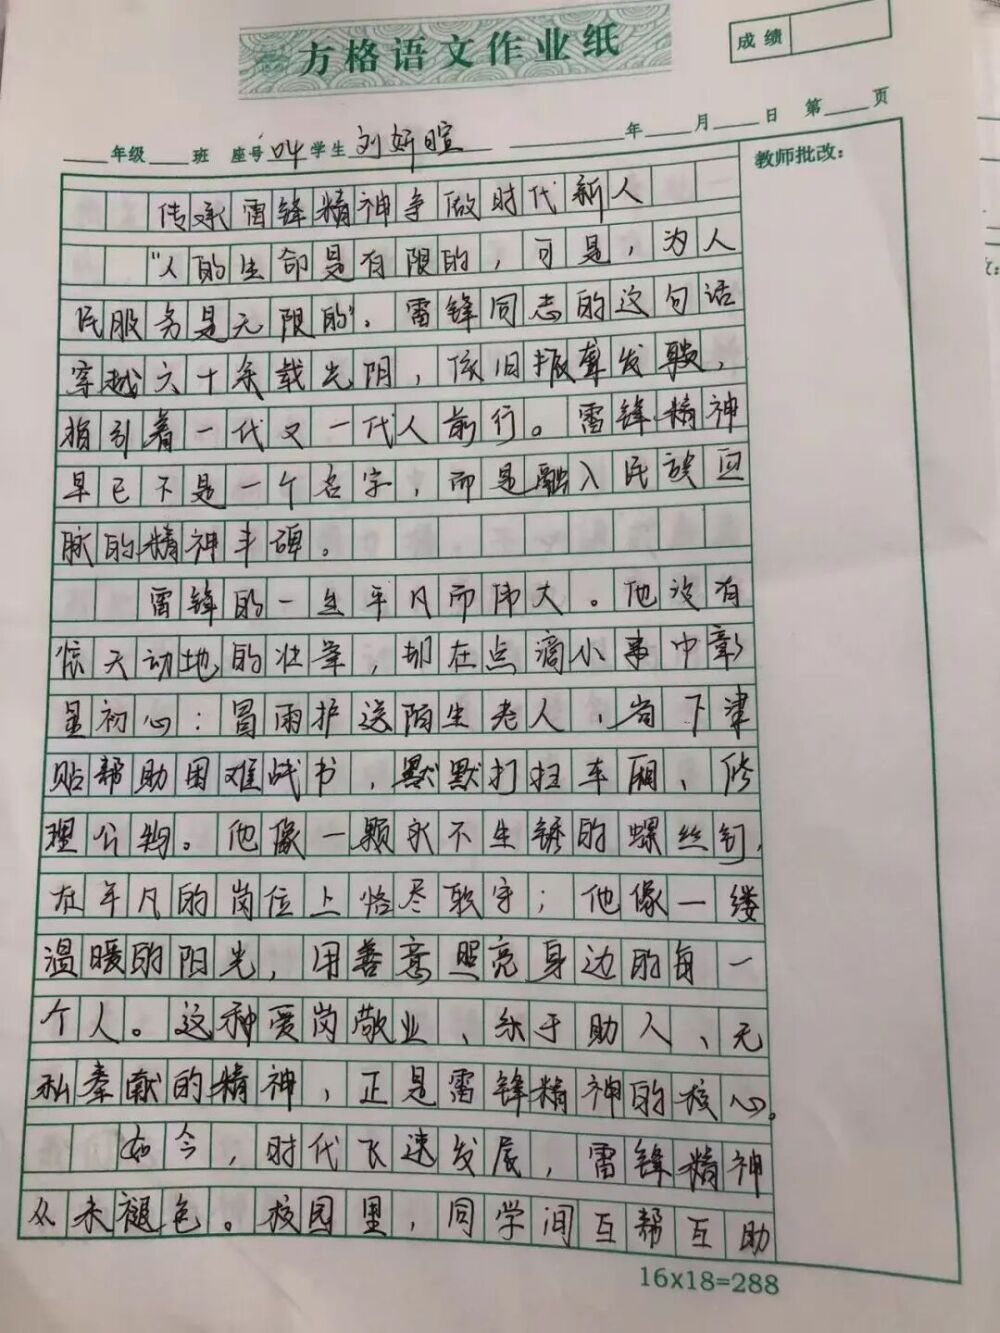 方格语文作业纸
成绩
年级 班 座号04学生刘妍暄 年 月 日 第 页
教师批改：
传承雷锋精神争做时代新人
“人的生命是有限的，可是，为人
民服务是无限的”。雷锋同志的这句话
穿越六十余载光阴，依旧振聋发聩，
指引着一代又一代人前行。雷锋精神
早已不是一个名字，而是融入民族血
脉的精神丰碑。
雷锋的一生平凡而伟大。他没有
惊天动地的壮举，却在点滴小事中彰
显初心：冒雨护送陌生老人、省下津
贴帮助困难战书，默默打扫车厢、修
理公物。他像一颗永不生锈的螺丝钉，
在平凡的岗位上恪尽职守；他像一缕
温暖的阳光，用善意照亮身边的每一
个人。这种爱岗敬业、乐于助人、无
私奉献的精神，正是雷锋精神的核心。
如今，时代飞速发展，雷锋精神
从未褪色。校园里，同学间互帮互助
16x18=288